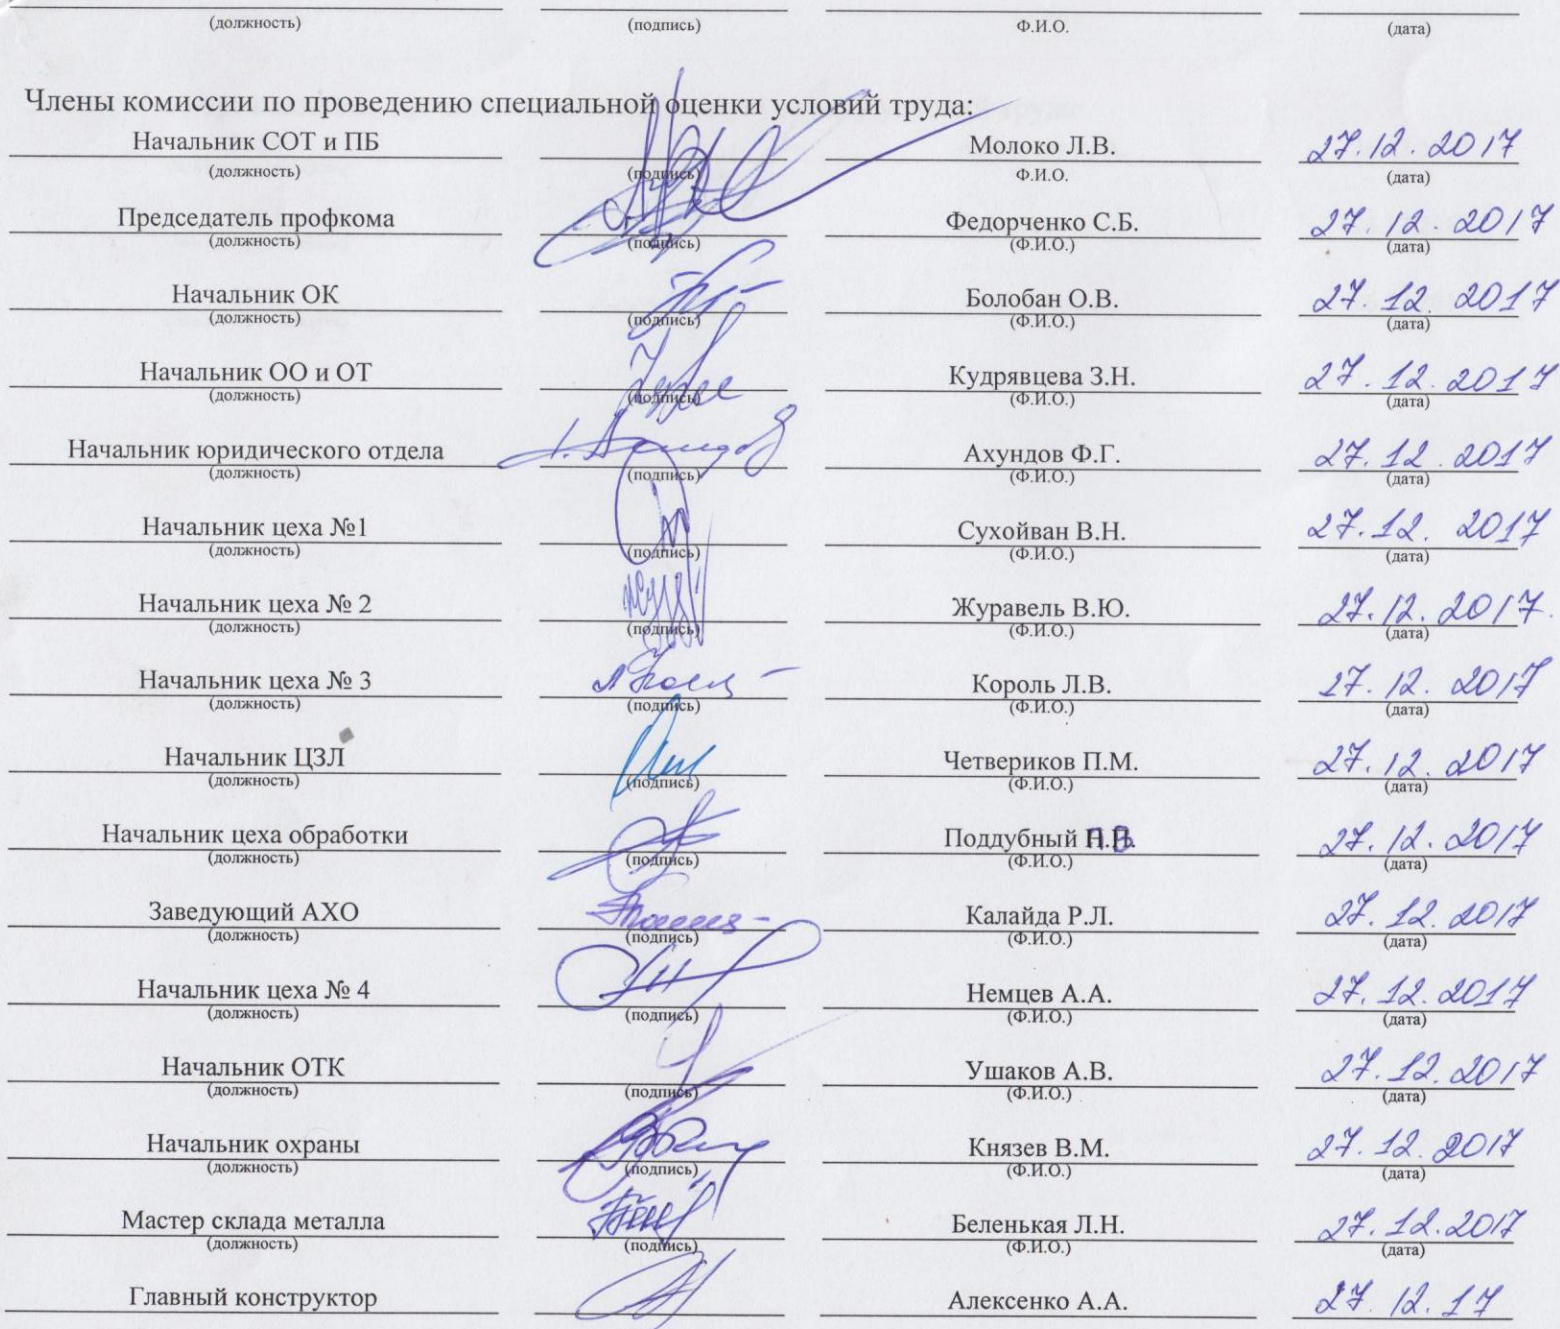 (должность) (подпись) Ф.И.О. (дата)
Члены комиссии по проведению специальной оценки условий труда:
Начальник СОТ и ПБ Молоко Л.В. 27.12.2017
(должность) (подпись) Ф.И.О. (дата)
Председатель профкома Федорченко С.Б. 27.12.2017
(должность) (подпись) (Ф.И.О.) (дата)
Начальник ОК Болобан О.В. 27.12.2017
(должность) (подпись) (Ф.И.О.) (дата)
Начальник ОО и ОТ Кудрявцева З.Н. 27.12.2017
(должность) (подпись) (Ф.И.О.) (дата)
Начальник юридического отдела Ахундов Ф.Г. 27.12.2017
(должность) (подпись) (Ф.И.О.) (дата)
Начальник цеха №1 Сухойван В.Н. 27.12.2017
(должность) (подпись) (Ф.И.О.) (дата)
Начальник цеха № 2 Журавель В.Ю. 27.12.2017.
(должность) (подпись) (Ф.И.О.) (дата)
Начальник цеха № 3 Король Л.В. 27.12.2017
(должность) (подпись) (Ф.И.О.) (дата)
Начальник ЦЗЛ Четвериков П.М. 27.12.2017
(должность) (подпись) (Ф.И.О.) (дата)
Начальник цеха обработки Поддубный 27.12.2017
(должность) (подпись) (Ф.И.О.) (дата)
Заведующий АХО Калайда Р.Л. 27.12.2017
(должность) (подпись) (Ф.И.О.) (дата)
Начальник цеха № 4 Немцев А.А. 27.12.2017
(должность) (подпись) (Ф.И.О.) (дата)
Начальник ОТК Ушаков А.В. 27.12.2017
(должность) (подпись) (Ф.И.О.) (дата)
Начальник охраны Князев В.М. 27.12.2017
(должность) (подпись) (Ф.И.О.) (дата)
Мастер склада металла Беленькая Л.Н. 27.12.2017
(должность) (подпись) (Ф.И.О.) (дата)
Главный конструктор Алексенко А.А. 27.12.17